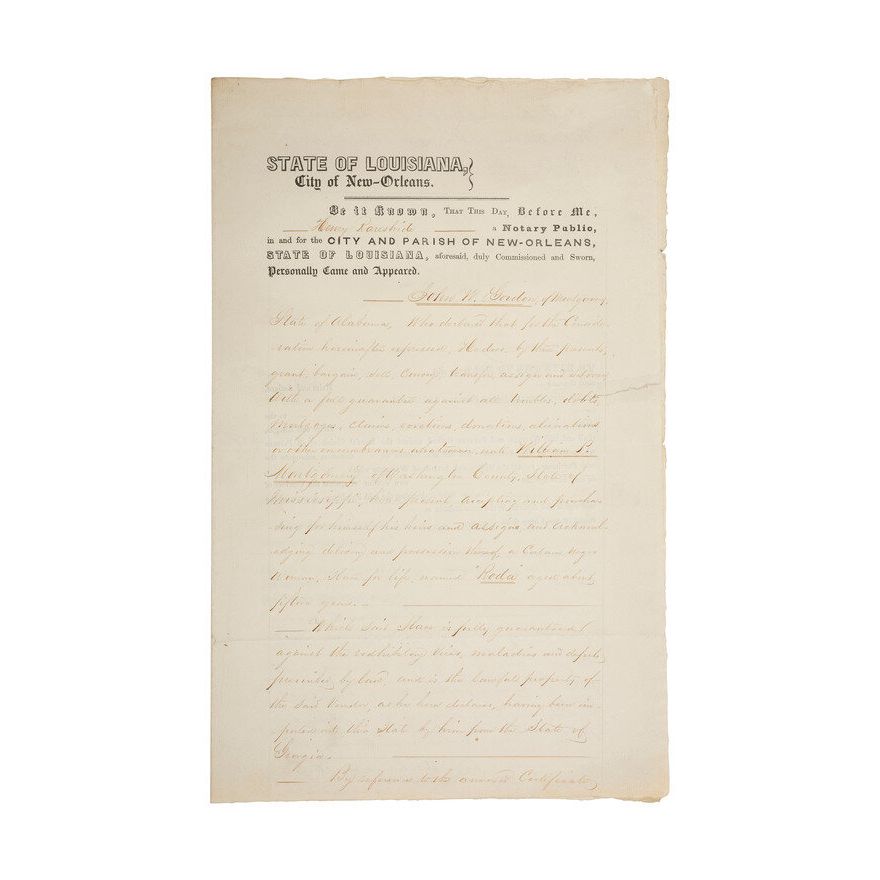 STATE OF LOUISIANA,
City of New-Orleans.
Be it Known, THAT THIS DAY, Before Me,
Henry a Notary Public,
in and for the CITY AND PARISH OF NEW-ORLEANS,
STATE OF LOUISIANA, aforesaid, duly Commissioned and Sworn,
Personally Came and Appeared.
John W. Gordon, of Montgomery,
State of Alabama, Who declared that for the Conside-
-ration hereinafter expressed, He does by these presents,
grant, bargain, sell, convey, transfer, assign and set over
With a full guarantee against all troubles, debts,
Mortgages, claims, evictions, donations, alienations
or other encumbrances whatsoever, unto William P.
Montgomery of Washington County, State of
Mississippi, here present, accepting and purcha-
-sing for himself his heirs and assigns, and acknowl-
-edging delivery and possession thereof, a Negro
Woman, Slave for life, named "Roda" aged about
fifteen years.-
Which said Slave is fully guaranteed
against the redhibitory vices, maladies and defects
prescribed by law, and is the lawful property of
the said Vendor, as he here declares, having been im-
-ported into this State by him from the State of
Georgia.
By reference to the annexed Certificates